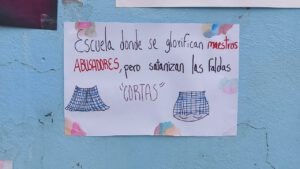 Escuela donde se glorifican maestros
ABUSADORES, pero satanizan las faldas
"CORTAS"